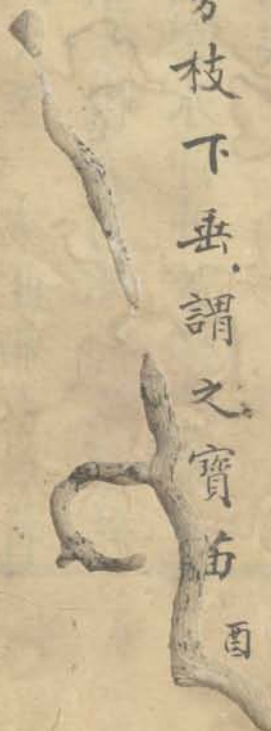 枝下垂.謂之寶
酉